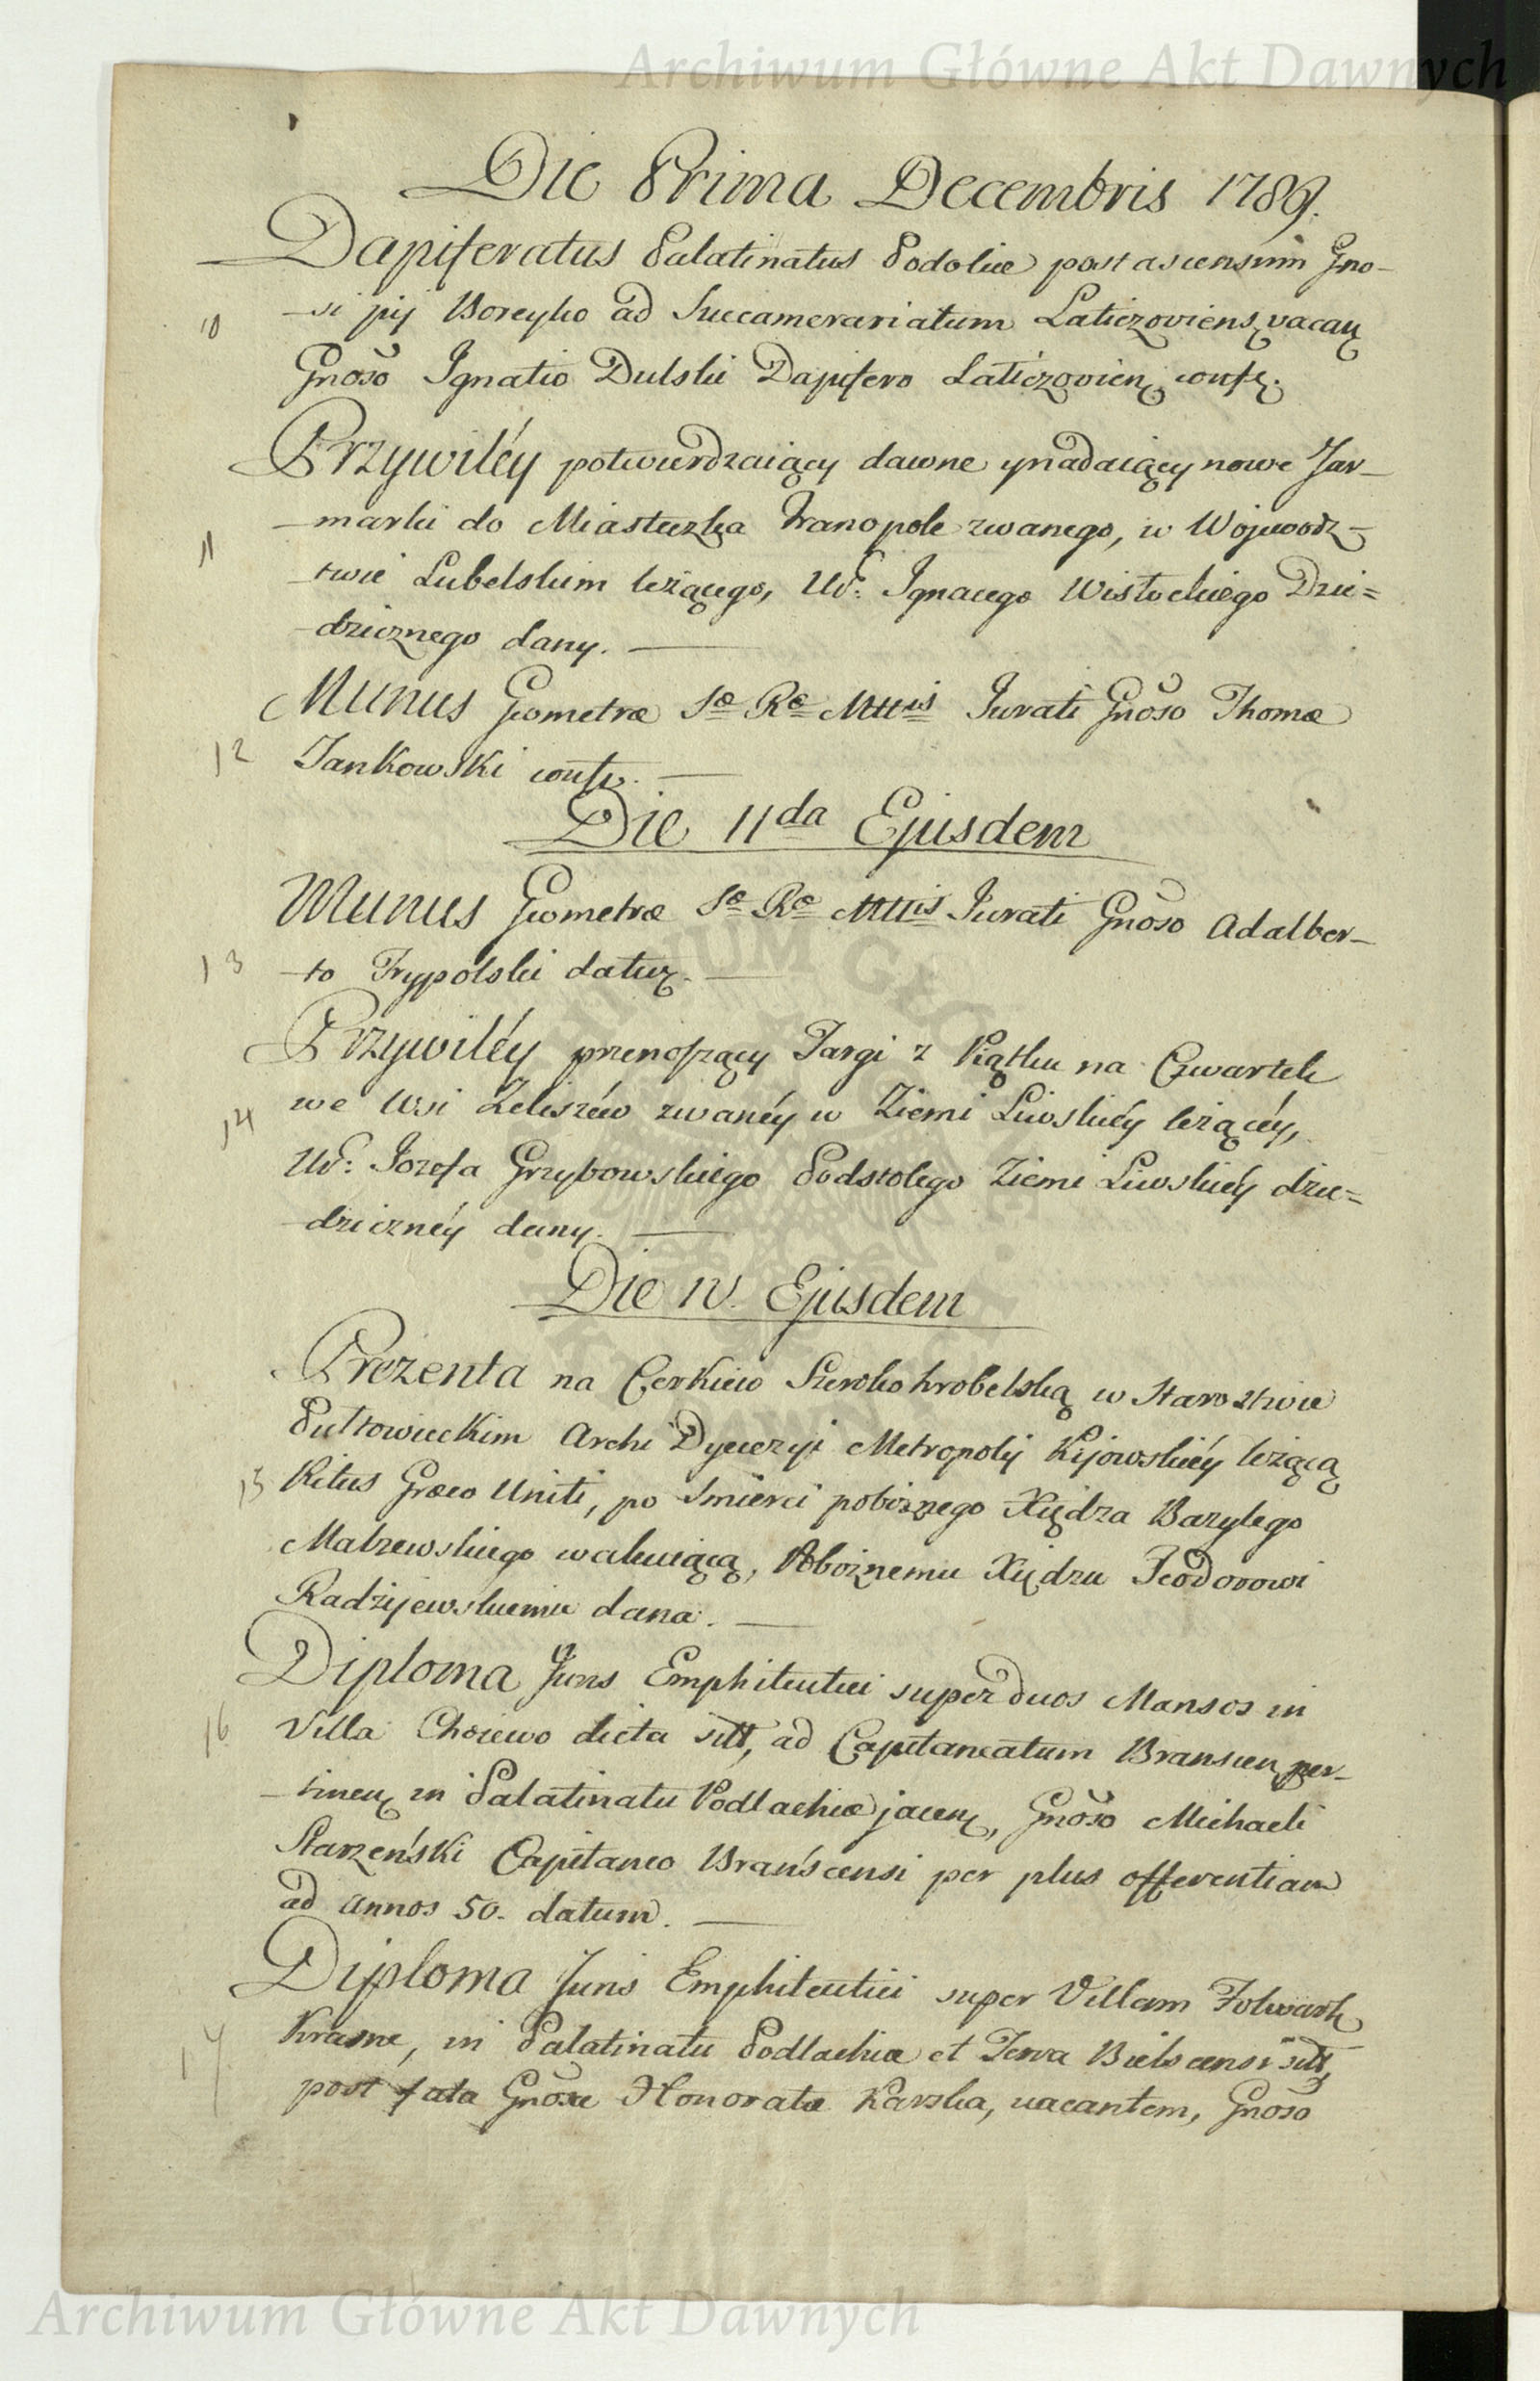 Archiwum Główne Akt Dawnych
Die Prima Decembris 1789.
Dapiferatus Palatinatus Podoliæ post ascensum Gno-
10 -si pij Boreyko ad Succamerariatum Laticzoviens vacan
Gnoso Ignatio Dulski Dapifero Laticzovien conft.
Przywiléy potwierdzaiący dawne y nadaiący nowe Jar-
-marki do Miasteczka Iranopole zwanego, w Wojewodz-
11 -twie Lubelskim leżącego, Ur: Ignacego Wisłockiego Dzie=
-dzicznego dany.
Munus Geometræ Sæ Ræ Mttis Jurati Gnoso Thomæ
12 Jankowski conft.
Die IIda Ejusdem
Munus Geometræ Sæ Ræ Mttis Jurati Gnoso Adalber-
13 -to Trypolski datur.
Przywiléy przenoszący Targi z Piątku na Czwartek
14 we Wsi Zeliszéw zwanéy w Ziemi Liwskiéy leżącéy,
Ur: Jozefa Grzybowskiego Podstolego Ziemi Liwskiéy dzie=
-dzicznéy dany.
Die IV. Ejusdem
Prezenta na Cerkiew Szerokohrobelską w Starostwie
Pułtowieckim Archi Dyecezyi Metropolij Kijowskiéy leżącą
15 Ritus Græco Uniti, po śmierci pobożnego Xiędza Bazylego
Malzewskiego wakuiącą, Pobożnemu Xiędzu Teodorowi
Radzijewskiemu dana.
Diploma Juris Emphiteutici super duos Mansos in
16 Villa Choiewo dicta sitt, ad Capitaneatum Bransien per-
-tinen in Palatinatu Podlachiæ jacen, Gnoso Michaeli
Starzeński Capitaneo Brańscensi per plus offerentiam
ad annos 50. datum.
Diploma Juris Emphiteutici super Villam Folwark
17 Krasne, in Palatinatu Podlachiæ et Terra Bielscensi sitt,
post fata Gnosæ Honoratæ Karska, vacantem, Gnoso
Archiwum Główne Akt Dawnych